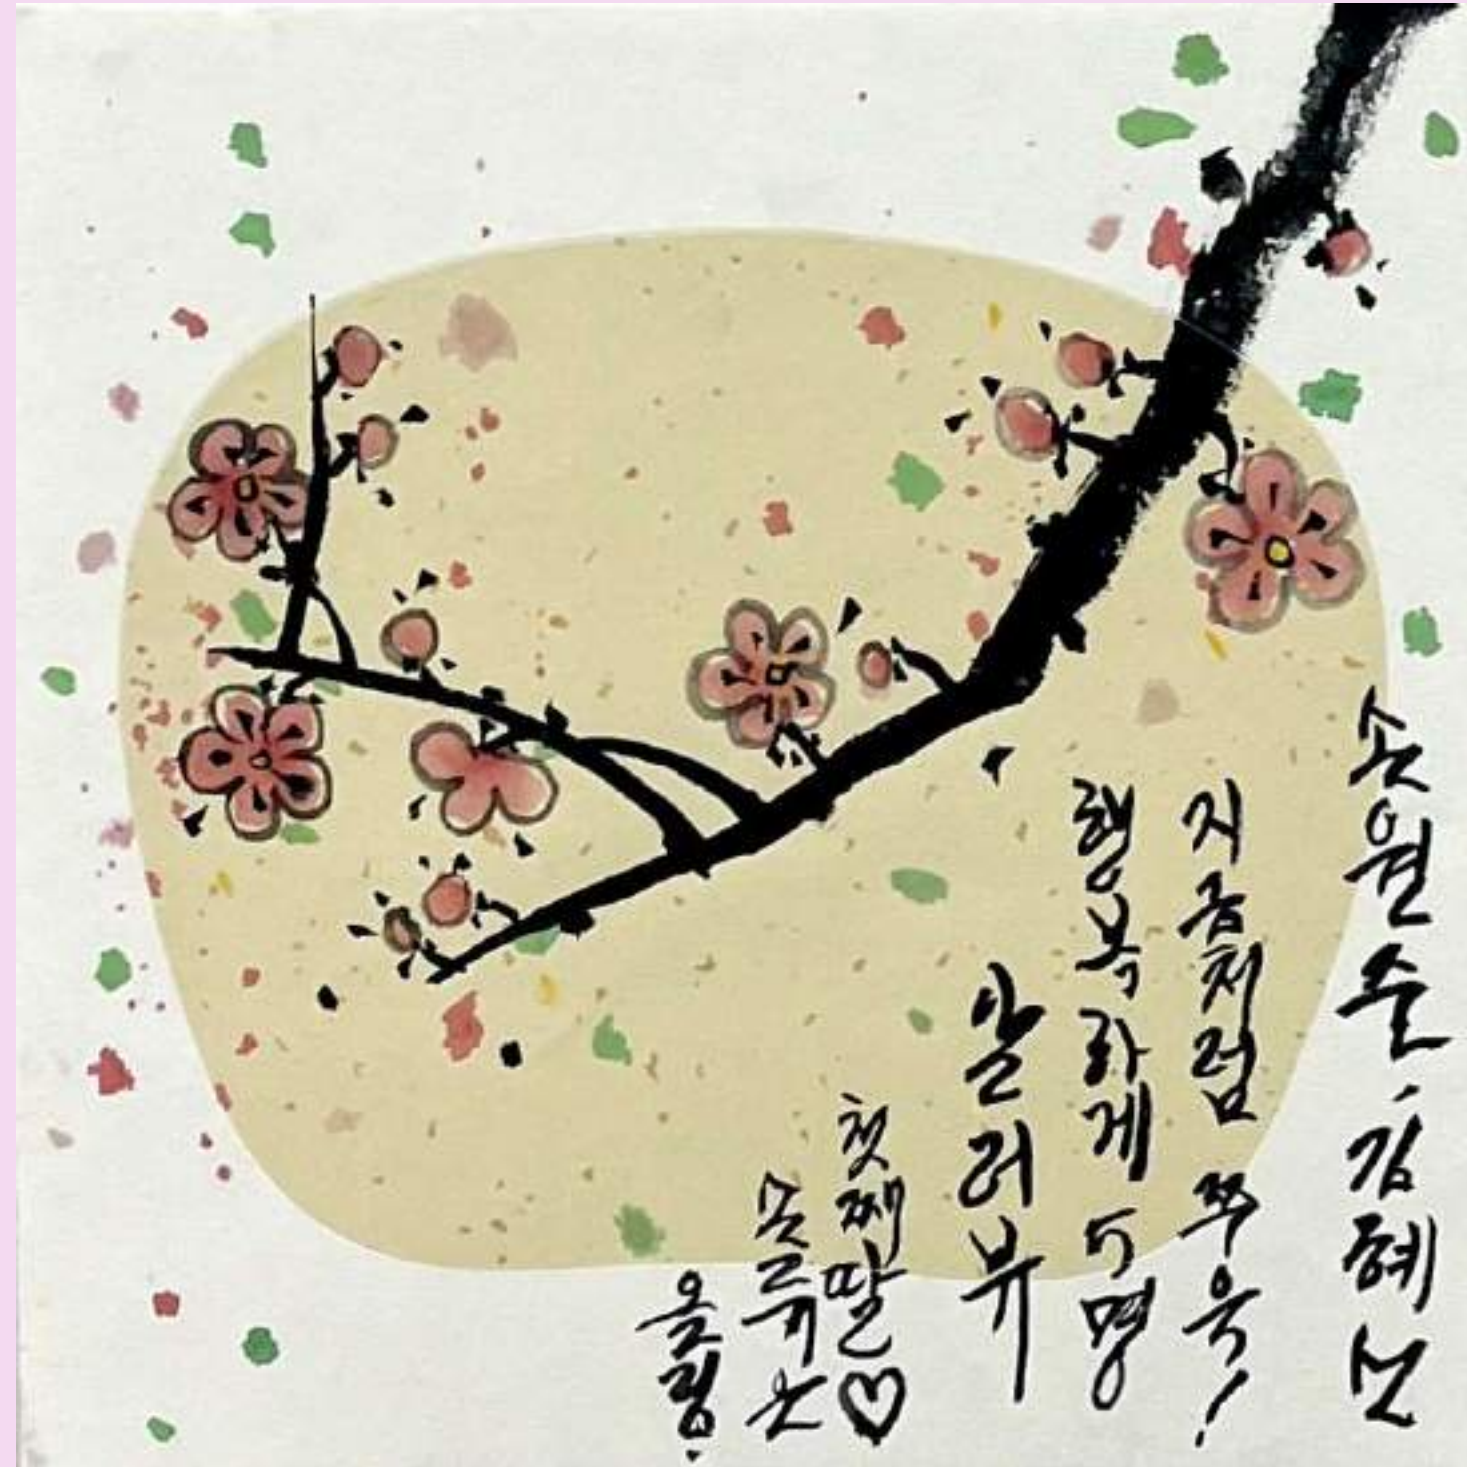 손월순, 김혜선
지금처럼 쭈욱!
행복하게 5명
알러뷰
첫째딸♡
손규은
올림.